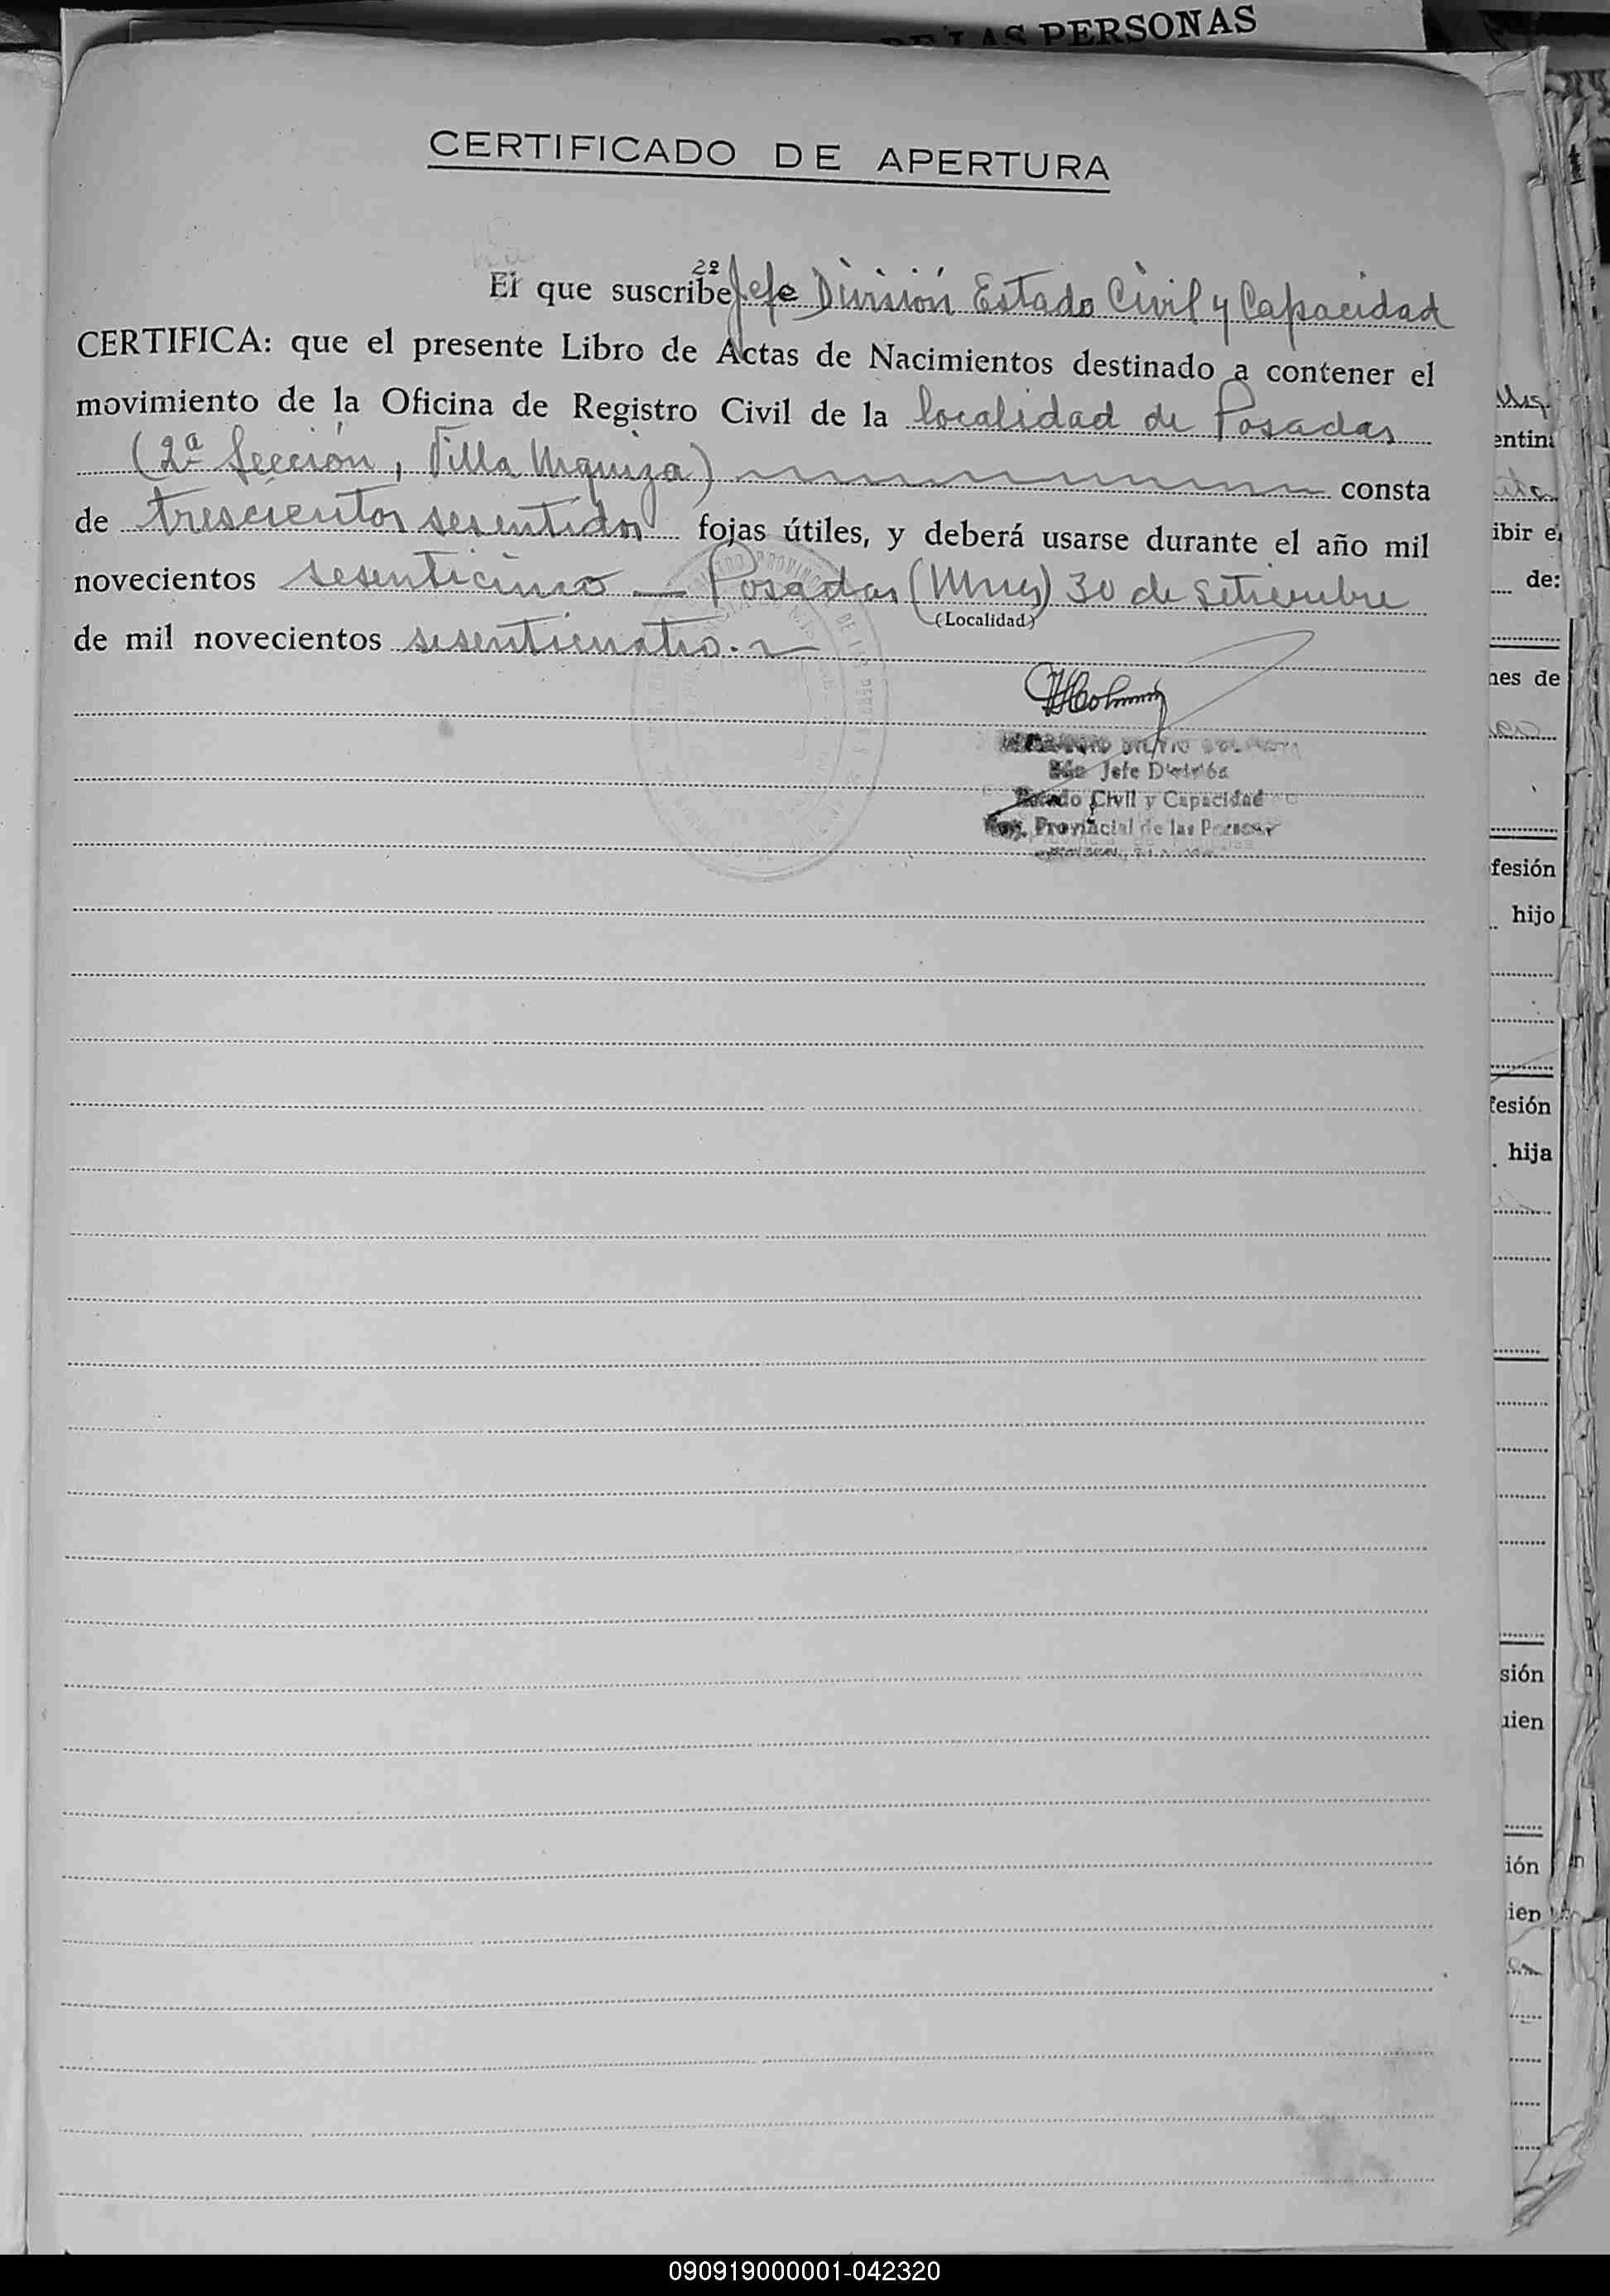 DE LAS PERSONAS
CERTIFICADO DE APERTURA
El que suscribe 2º Jefe División Estado Civil y Capacidad
CERTIFICA: que el presente Libro de Actas de Nacimientos destinado a contener el
movimiento de la Oficina de Registro Civil de la localidad de Posadas
(2ª Sección, Villa Urquiza) consta
de trescientos sesentidos fojas útiles, y deberá usarse durante el año mil
novecientos sesenticinco — Posadas (Mnes) 30 de setiembre
(Localidad)
de mil novecientos sesenticuatro.
Jefe División
Estado Civil y Capacidad
Reg. Provincial de las Personas
entina
ibir el
de:
nes de
fesión
hijo
fesión
hija
sión
uien
ión
ien
090919000001-042320